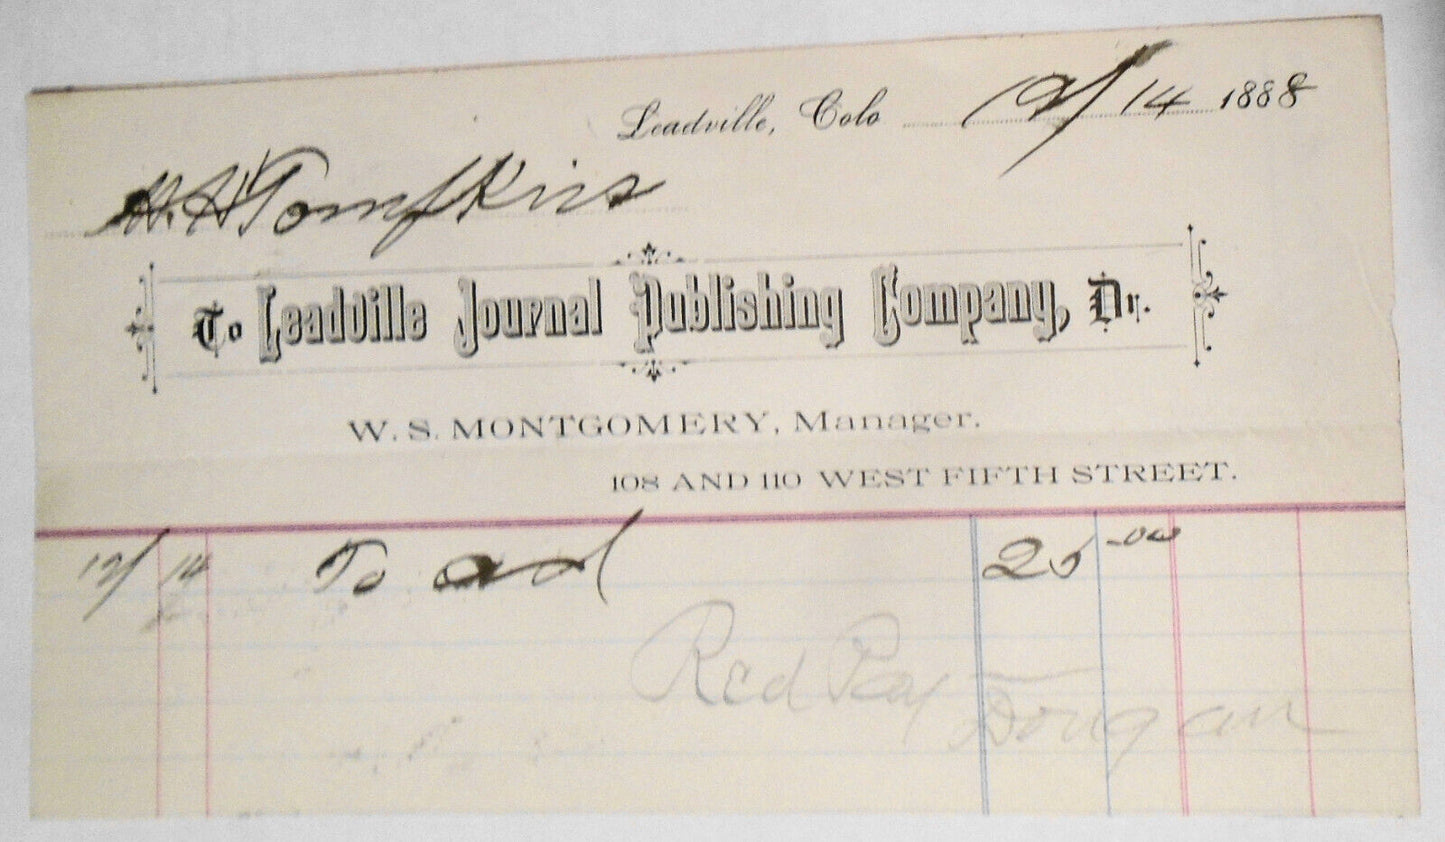 Leadville, Colo 12/14 1888
H. H. Tompkins
To Leadville Journal Publishing Company, Dr.
W. S. MONTGOMERY, Manager.
108 AND 110 WEST FIFTH STREET.
12/14 To ad 25 -00
Recd Pay
Dougan